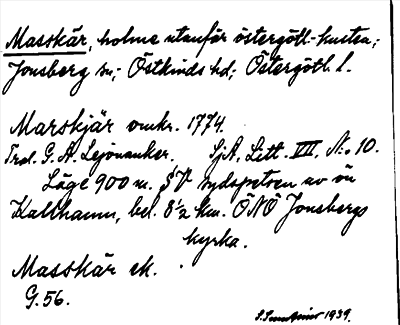 Masskär, holme utanför östergötl.-kusten;
Jonsberg sn; Östkinds hd; Östergötl. l.
Marskjär omkr. 1774.
Trol. G. A. Lejonanker. SjA, Litt. VIII, No 10.
Läge 900 m. SV sydspetsen av ön
Kallhamn, bel. 8½ km. ÖNÖ Jonsbergs
kyrka.
Masskär ek.
G. 56.
1939.